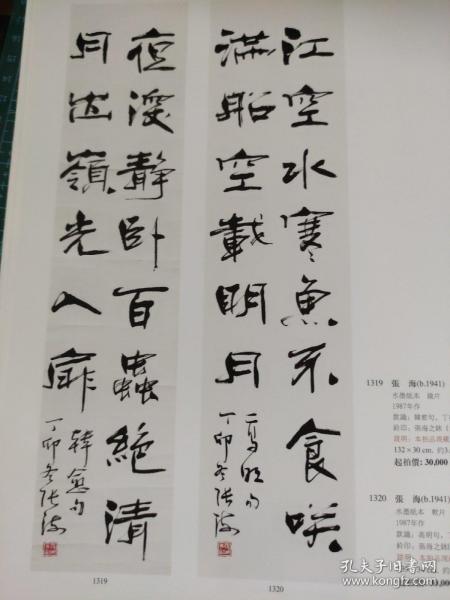 夜深靜卧百蟲絕清
月出嶺光入扉
韓愈句
丁卯冬張海
1319
江空水寒魚不食咲
滿船空載明月
高明句
丁卯冬張海
1320
1319 張 海(b.1941)
水墨紙本 鏡片
1987年作
款識：韓愈句，丁
鈐印：張海之鉥（
說明：本拍品現藏
132×30 cm. 約3.
起拍價: 30,000
1320 張 海(b.1941)
水墨紙本 軟片
1987年作
款識：高明句，丁
鈐印：張海之鉥
孔夫子旧书网